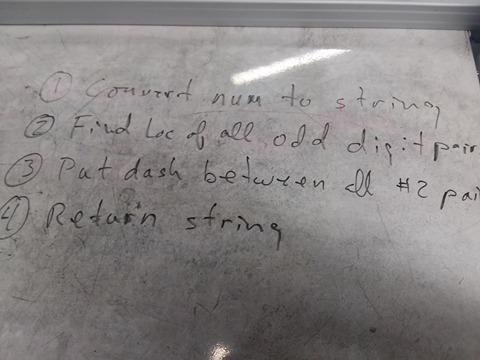 ① Convert num to string
② Find Loc of all odd digit pair
③ Put dash between all #2 pai
④ Return string